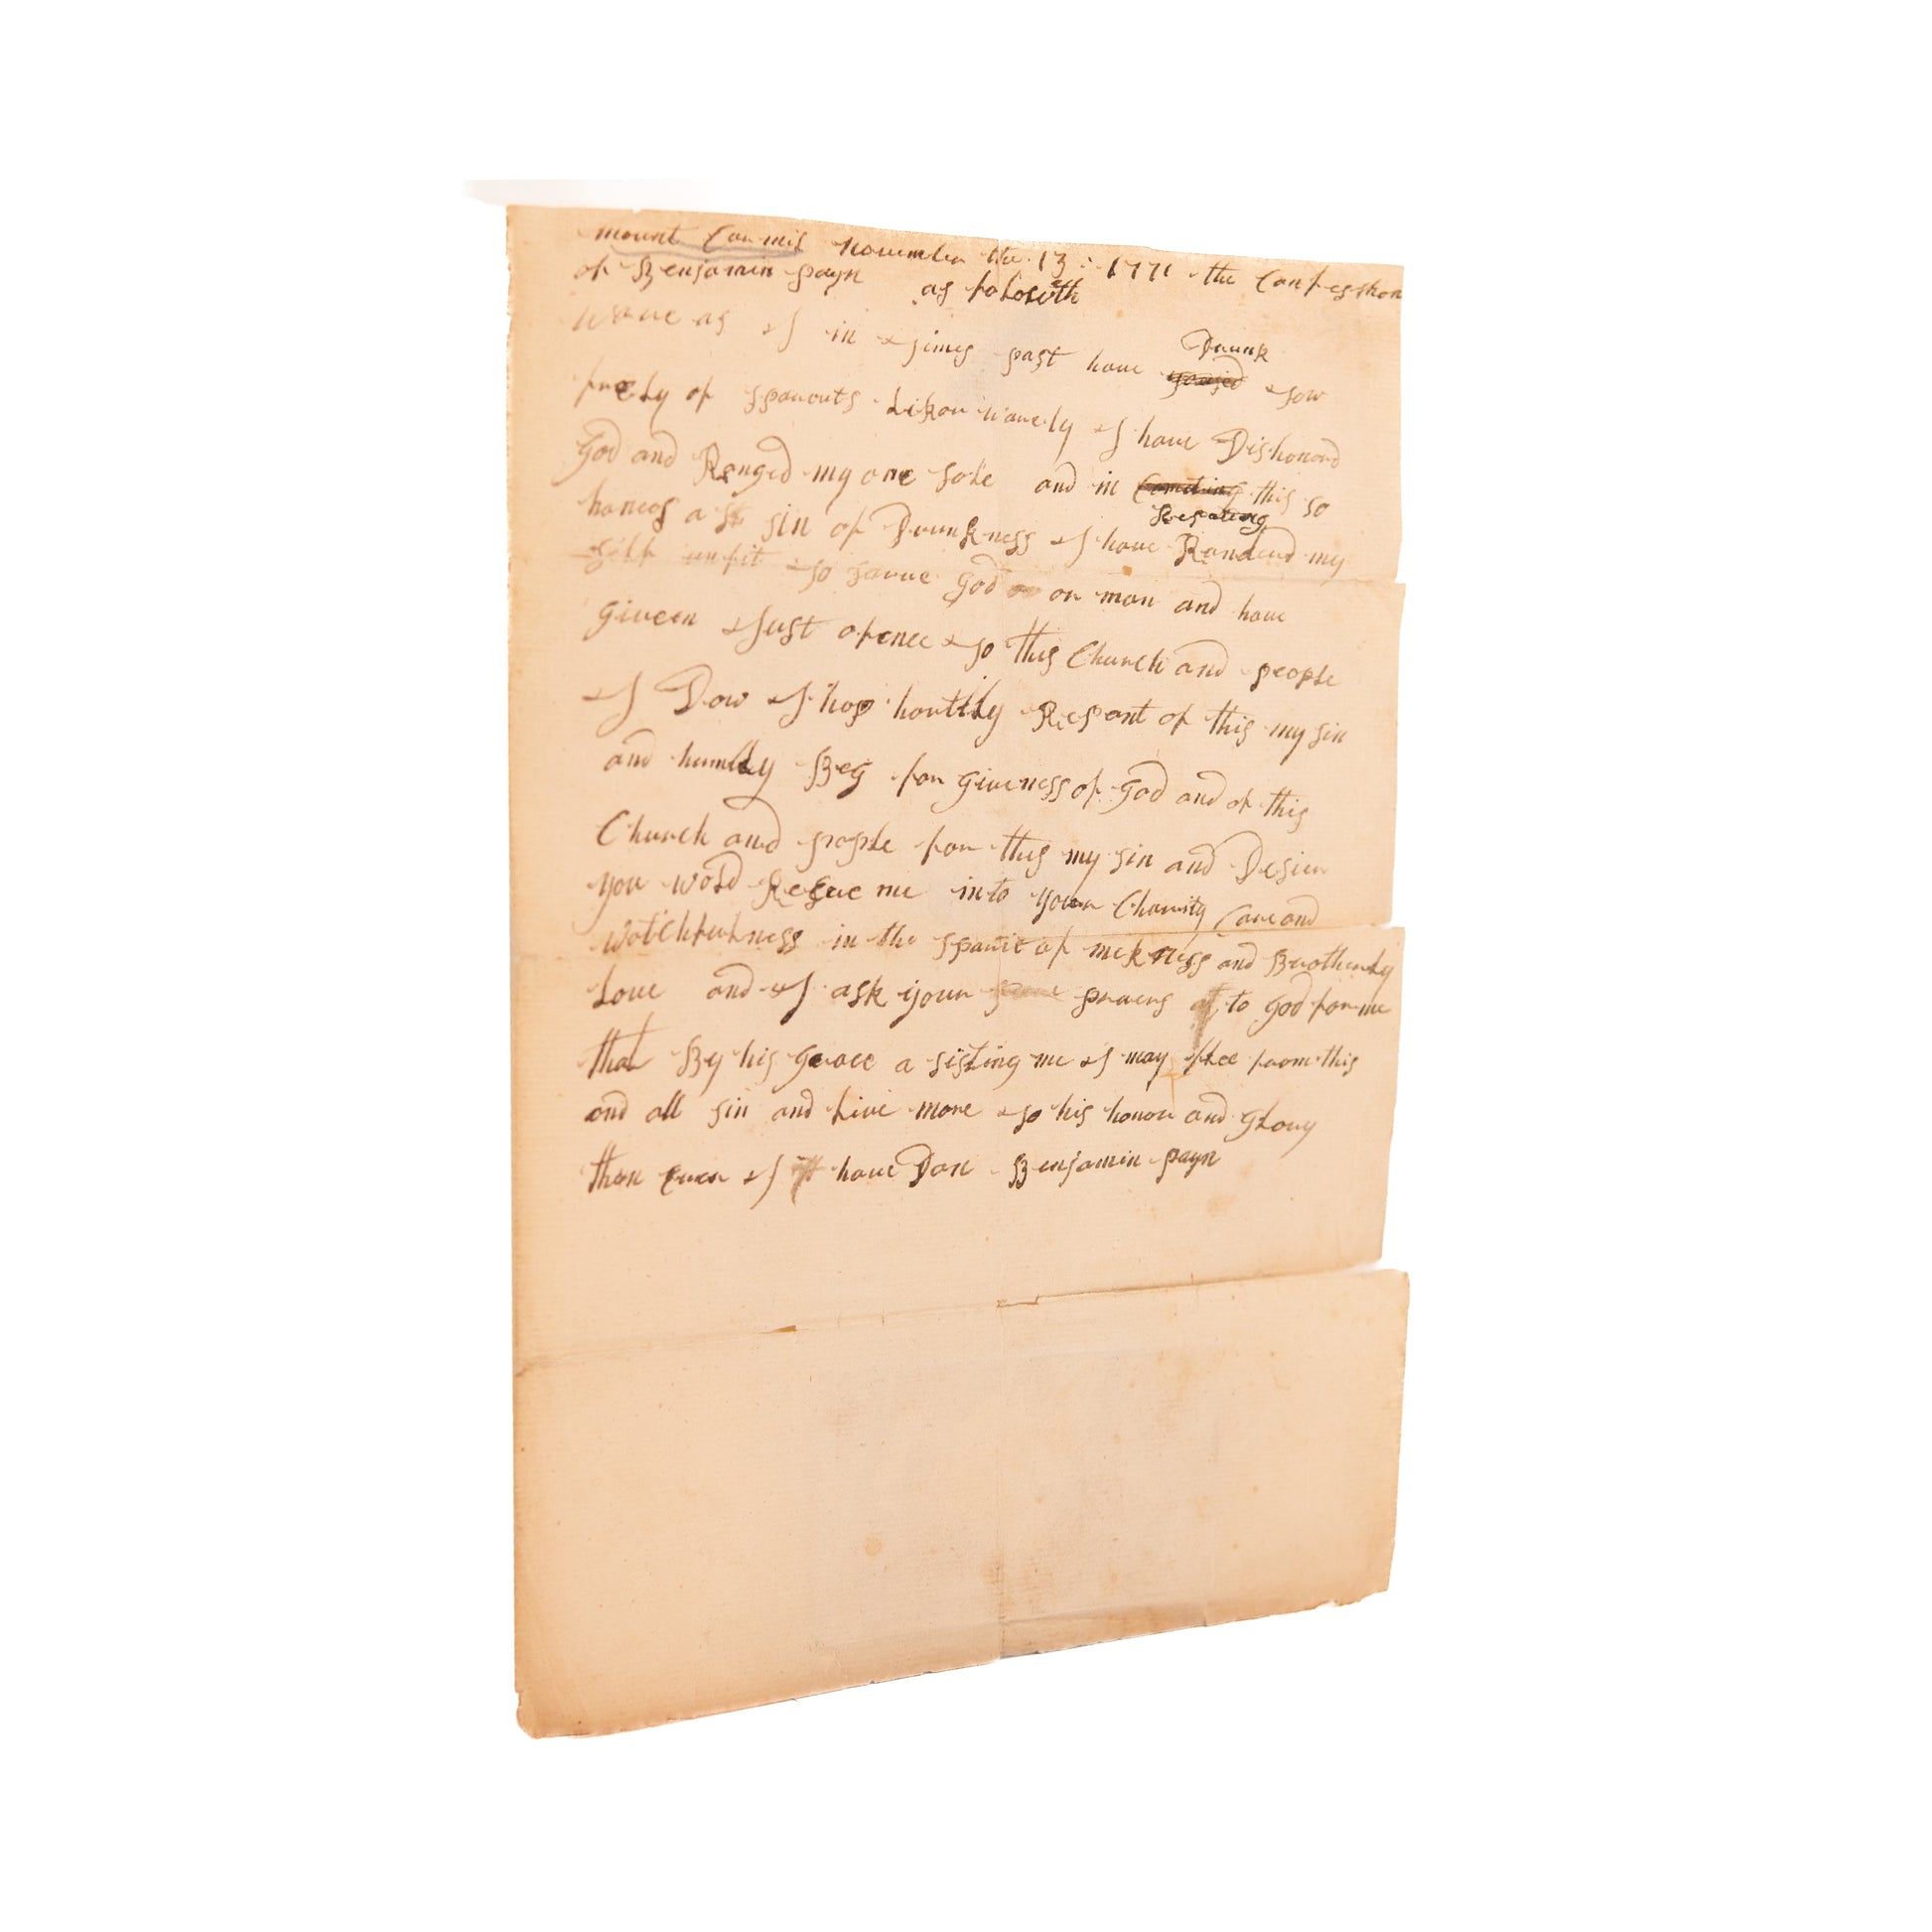 mount Carmil November the 13 : 1771 the Confesshon
of Benjamin payn as foloweth
Ware as I in times past have Drunk tow
frely of sparits Likor warely I have Dishonord
God and Ronged my one sole and in this so
haneos a sin of Drunkness I have Randerd my
self unfit to sarve God or man and have
given Just ofence to this Church and people
I Dow I hop hartily Repant of this my sin
and humbly Beg forgiveness of God and of this
Church and people for this my sin and Desier
you wold Receve me into your Charity Care and
Watchfulness in the sparit of mekness and Brotherly
Love and I ask your prayers to God for me
that By his Grace a sisting me I may flee from this
and all sin and Live more to his honor and Glory
than Ever I have Don Benjamin payn